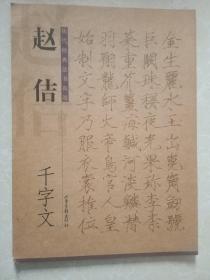 赵佶
千字文
金生麗水玉出崑岡劍號
巨闕珠稱夜光果珍李柰
菜重芥薑海鹹河淡鱗潛
羽翔龍師火帝鳥官人皇
始制文字乃服衣裳推位